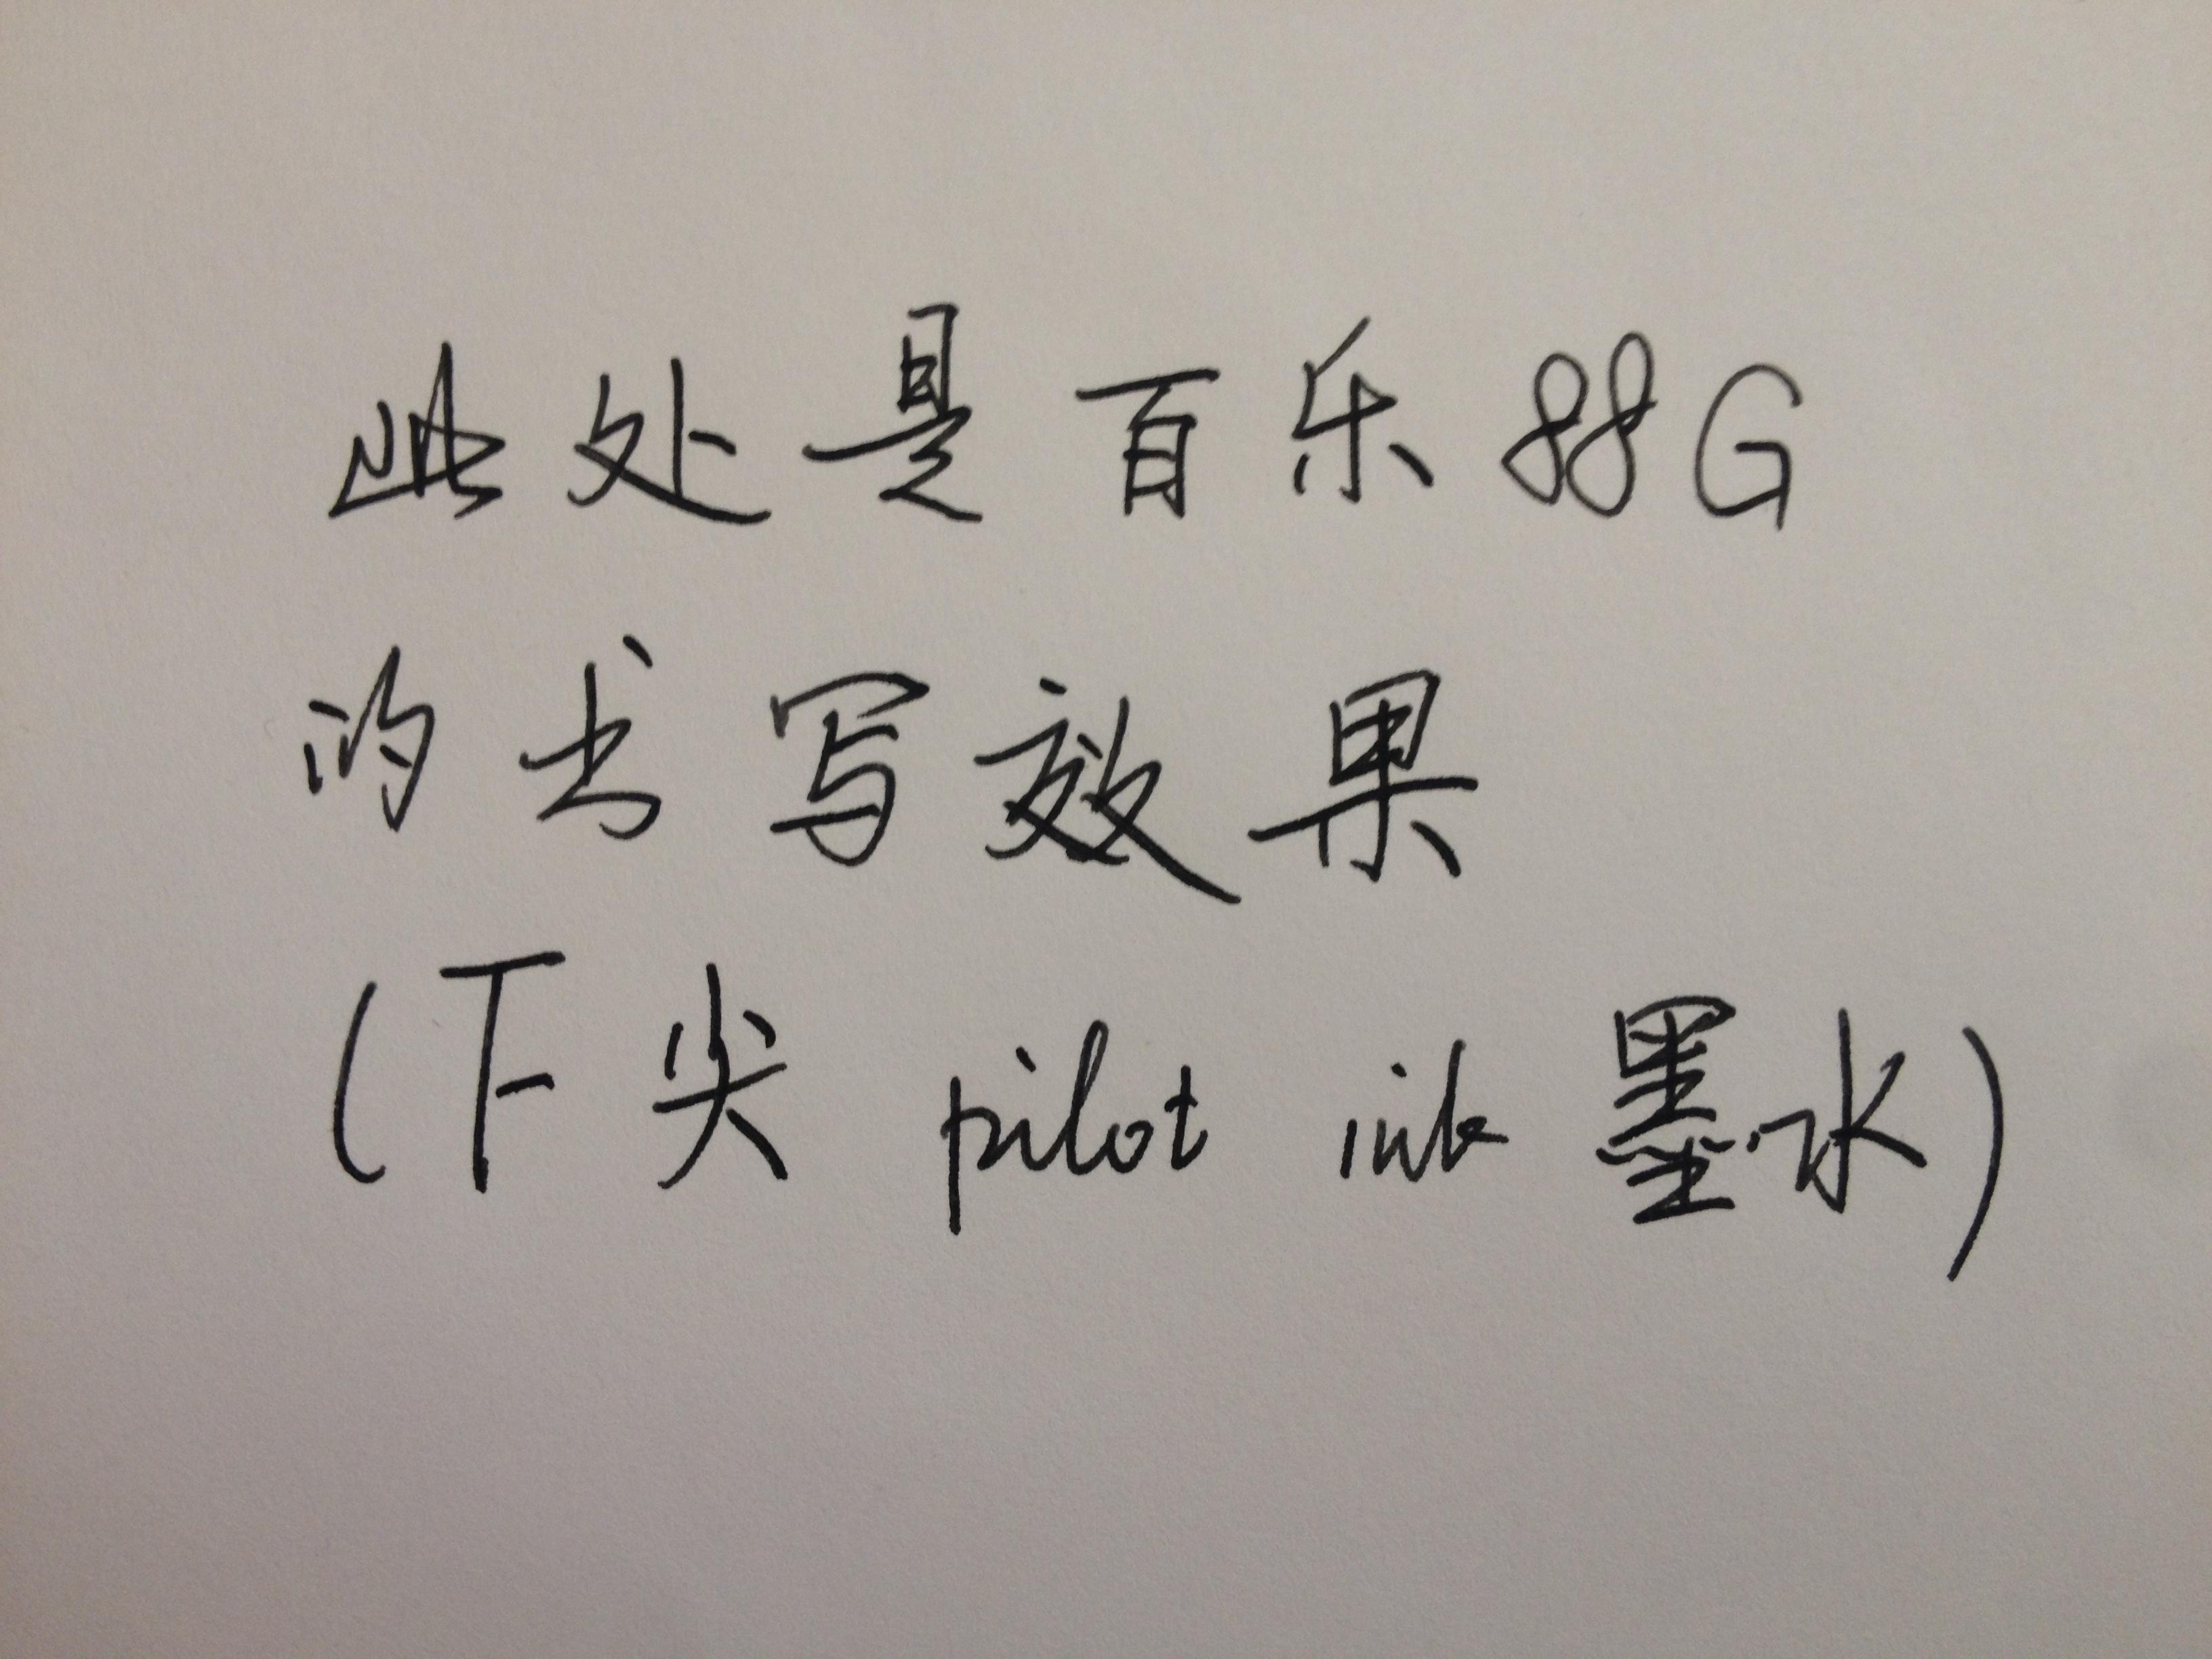 此处是百乐88G
的书写效果
(F尖 pilot ink 墨水)